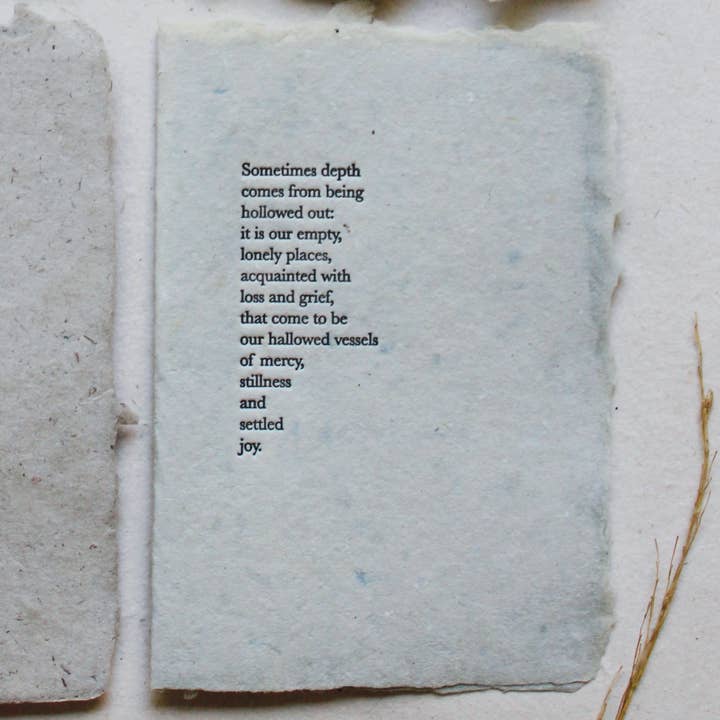 Sometimes depth
comes from being
hollowed out:
it is our empty,
lonely places,
acquainted with
loss and grief,
that come to be
our hallowed vessels
of mercy,
stillness
and
settled
joy.